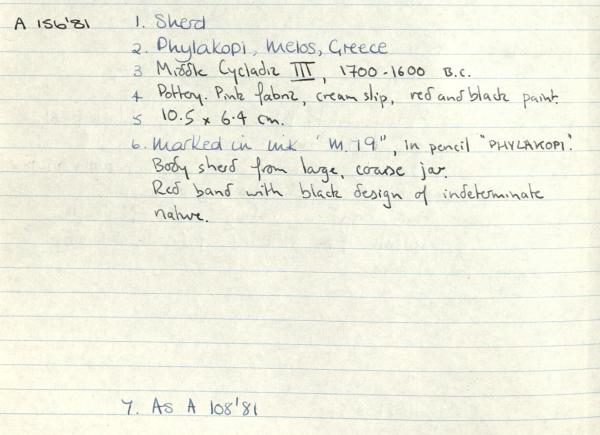 A 156'81 1. Sherd
2. Phylakopi, Melos, Greece
3 Middle Cycladic III, 1700-1600 B.C.
4 Pottery. Pink fabric, cream slip, red and black paint.
5 10.5 x 6.4 cm.
6. Marked in ink "M.79", in pencil "PHYLAKOPI".
Body sherd from large, coarse jar.
Red band with black design of indeterminate
nature.
7. As A 108'81